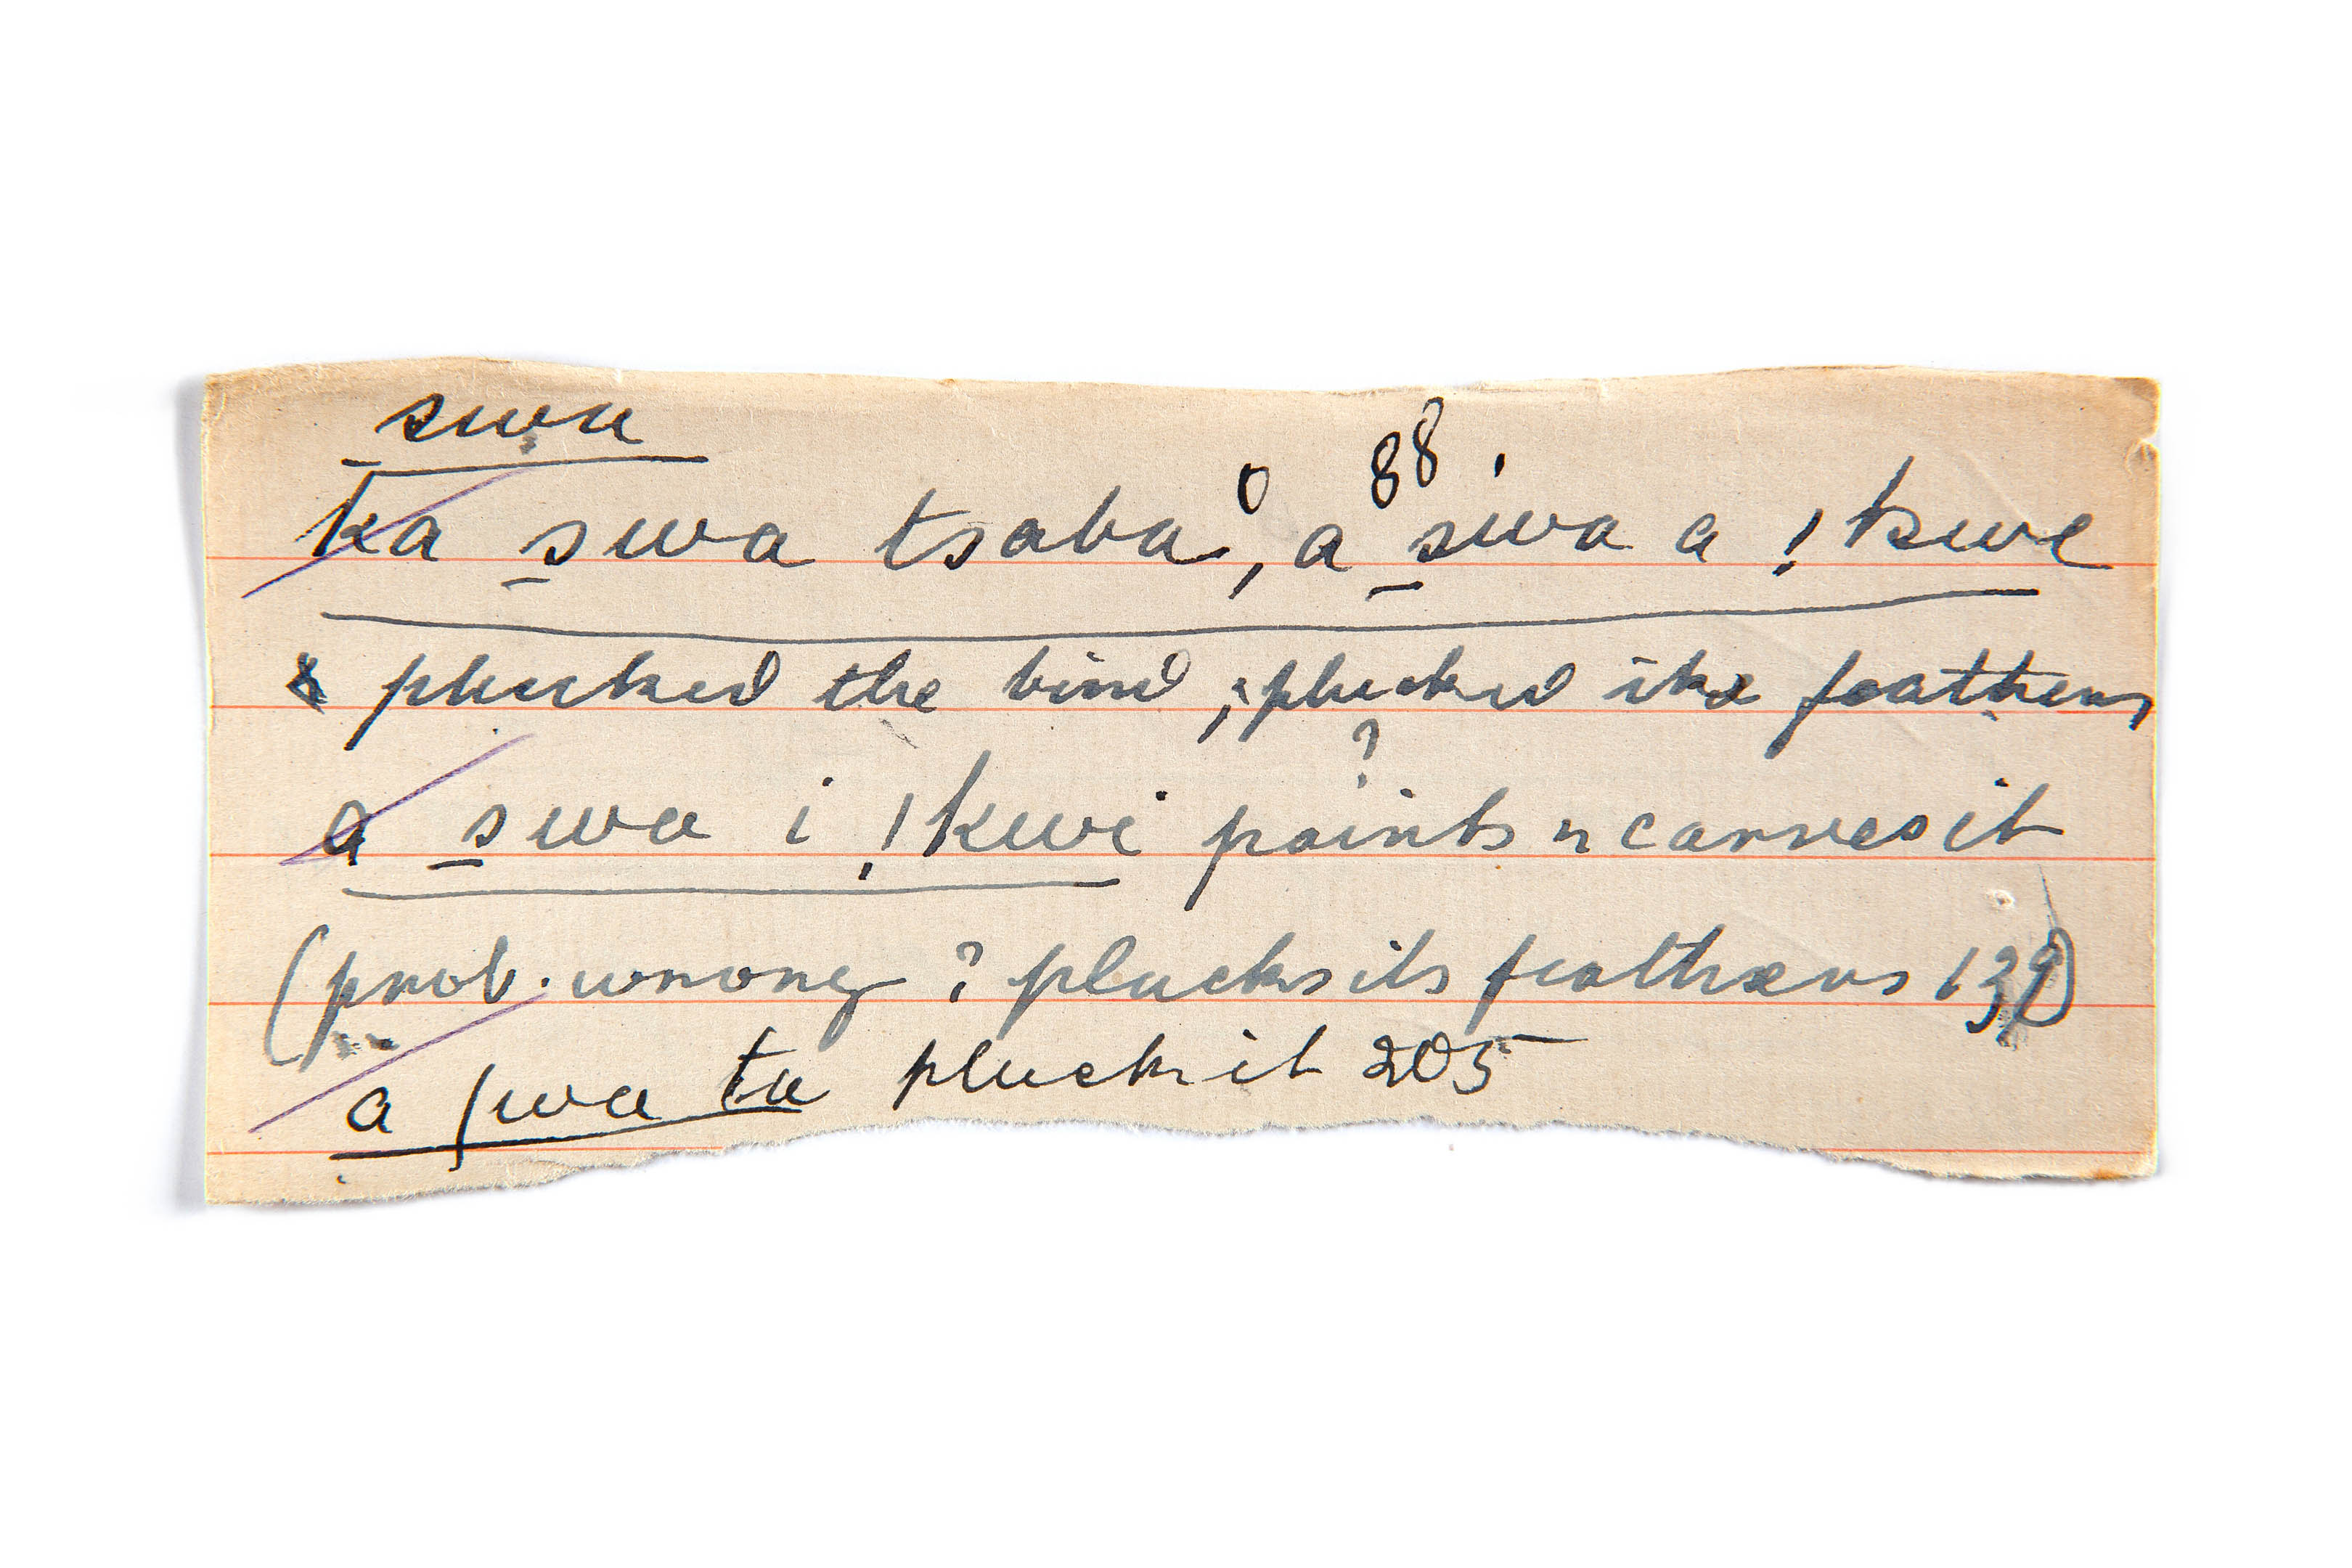 swa
ka swa tsaba, a swa a !kwe 88.
plucked the bird; plucked its feathers
a swa i !kwi paints or carves it ?
(prob. wrong ? plucks its feathers 139)
a ʃwa ta pluck it 205